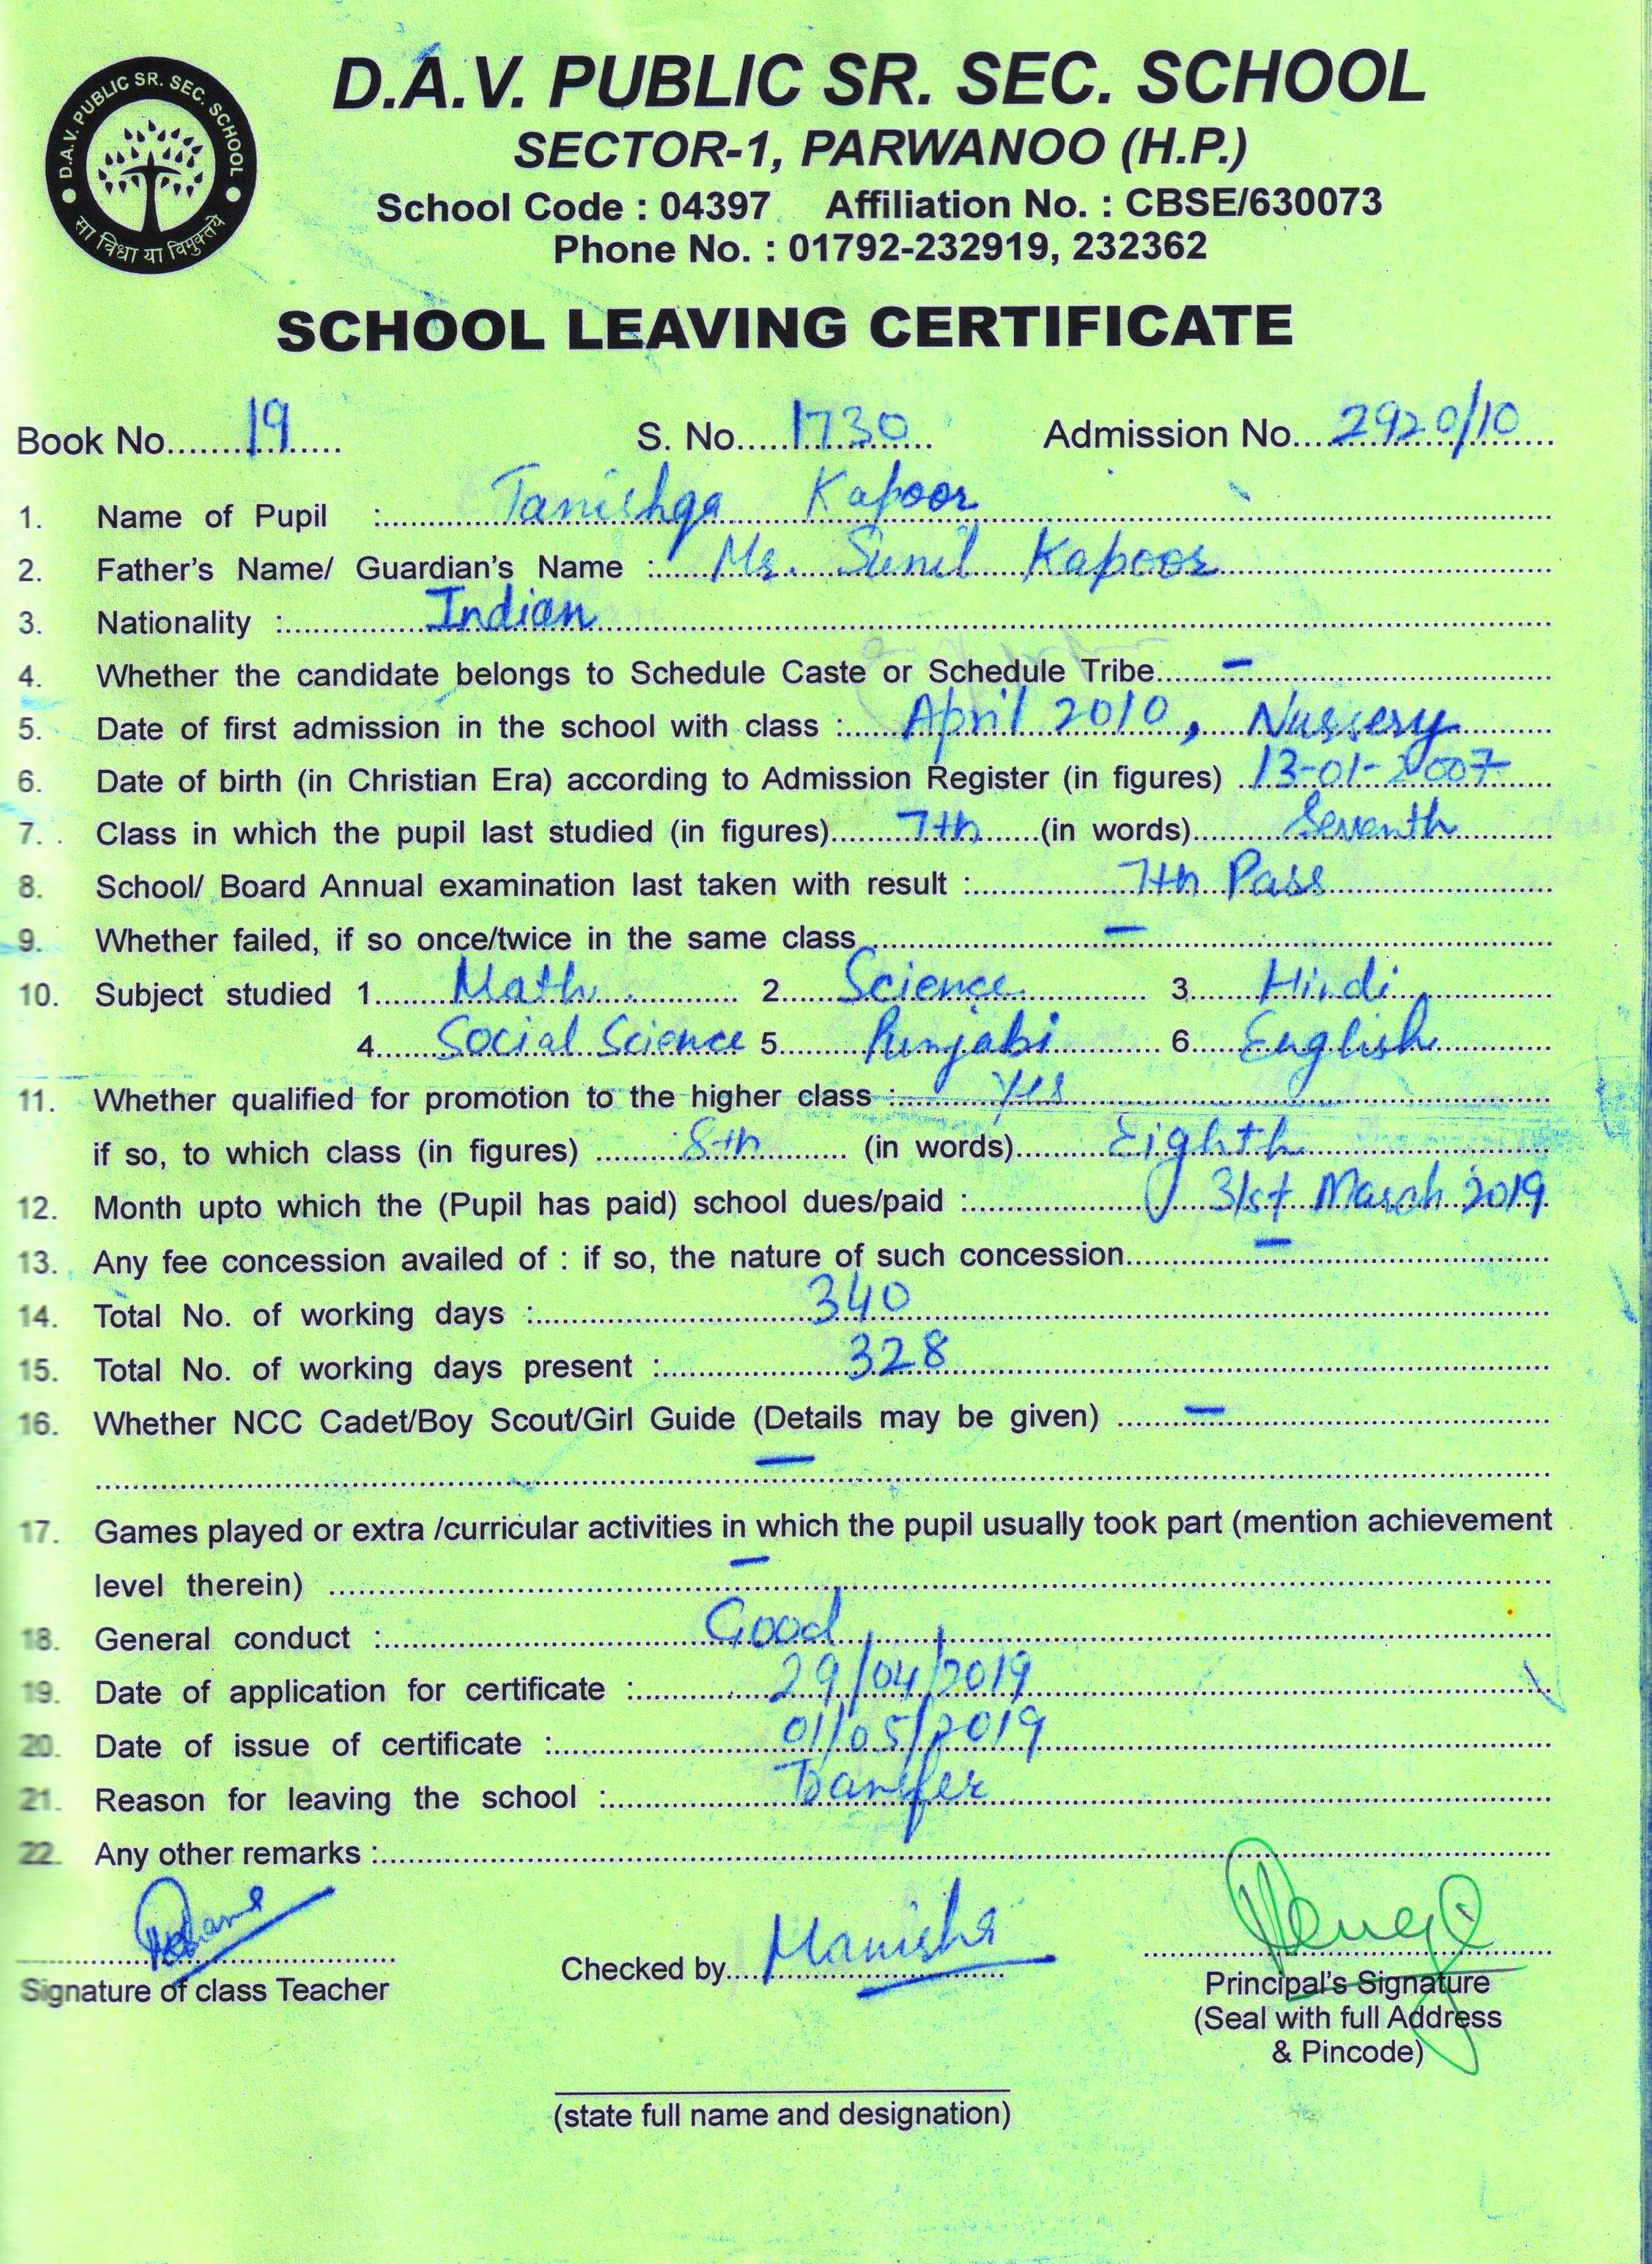 D.A.V. PUBLIC SR. SEC. SCHOOL
सा विद्या या विमुक्तये
D.A.V. PUBLIC SR. SEC. SCHOOL
SECTOR-1, PARWANOO (H.P.)
School Code : 04397 Affiliation No. : CBSE/630073
Phone No. : 01792-232919, 232362
SCHOOL LEAVING CERTIFICATE
Book No. 19 S. No. 1730 Admission No. 2920/10
1. Name of Pupil : Tanishqa Kapoor
2. Father's Name/ Guardian's Name : Mr. Sunil Kapoor
3. Nationality : Indian
4. Whether the candidate belongs to Schedule Caste or Schedule Tribe –
5. Date of first admission in the school with class : April 2010, Nursery
6. Date of birth (in Christian Era) according to Admission Register (in figures) 13-01-2007
7. Class in which the pupil last studied (in figures) 7th (in words) Seventh
8. School/ Board Annual examination last taken with result : 7th Pass
9. Whether failed, if so once/twice in the same class –
10. Subject studied 1. Math 2. Science 3. Hindi
4. Social Science 5. Punjabi 6. English
11. Whether qualified for promotion to the higher class : Yes
if so, to which class (in figures) 8th (in words) Eighth
12. Month upto which the (Pupil has paid) school dues/paid : 31st March 2019
13. Any fee concession availed of : if so, the nature of such concession –
14. Total No. of working days : 340
15. Total No. of working days present : 328
16. Whether NCC Cadet/Boy Scout/Girl Guide (Details may be given) –
–
17. Games played or extra /curricular activities in which the pupil usually took part (mention achievement
level therein) –
18. General conduct : Good
19. Date of application for certificate : 29/04/2019
20. Date of issue of certificate : 01/05/2019
21. Reason for leaving the school : Transfer
22. Any other remarks :
Signature of class Teacher
Checked by Manisha
Principal's Signature
(Seal with full Address
& Pincode)
(state full name and designation)